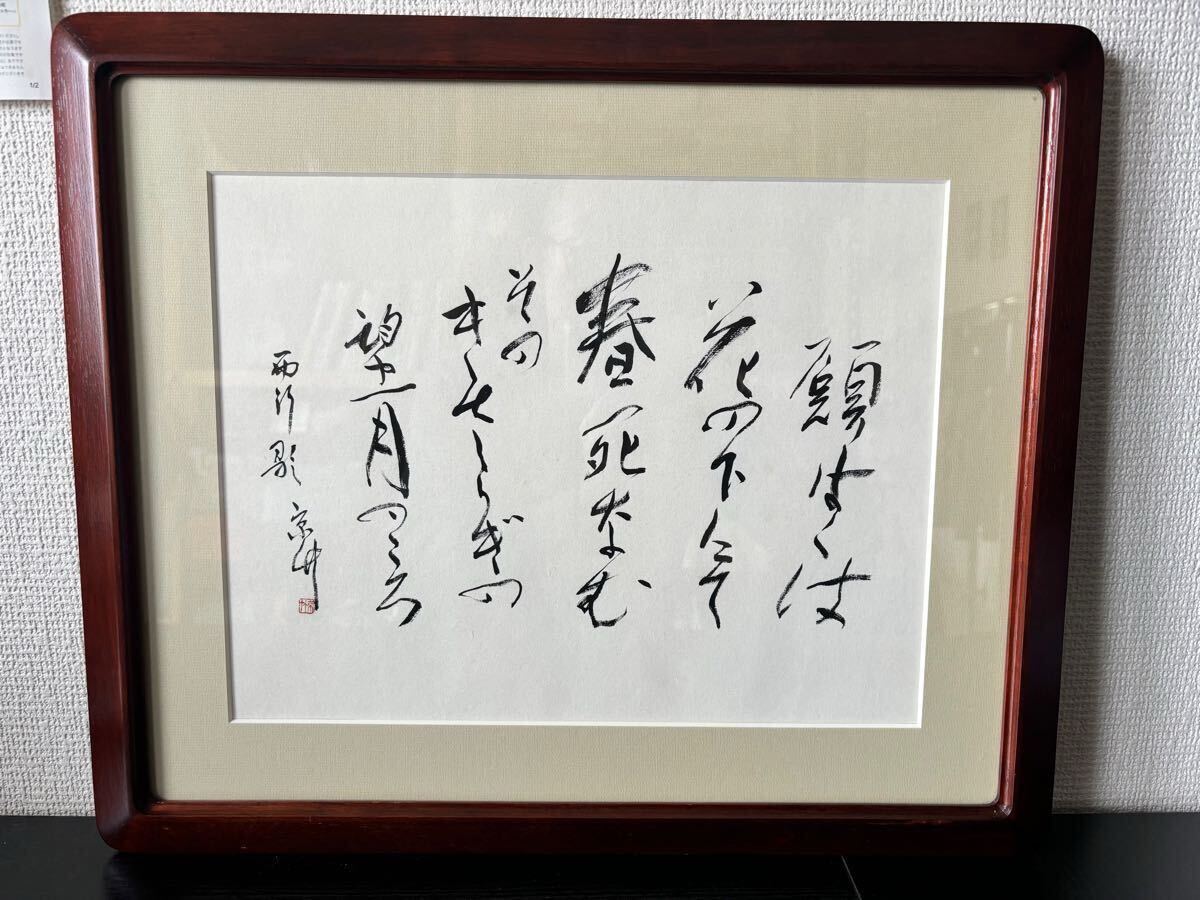 願はくは
花の下にて
春死なむ
その
きさらぎの
望月のころ
西行歌
1/2